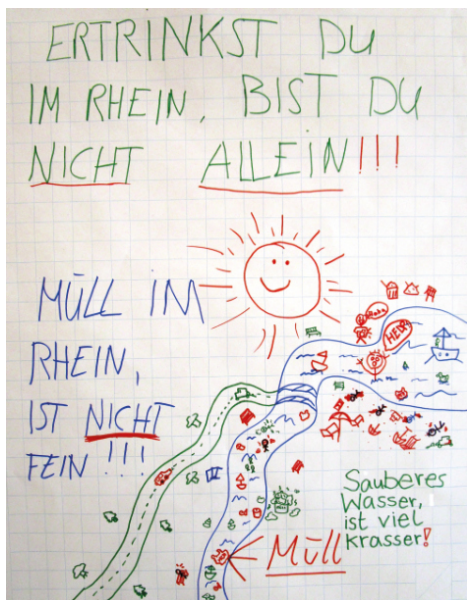 ERTRINKST DU
IM RHEIN, BIST DU
NICHT ALLEIN!!!
MÜLL IM
RHEIN,
IST NICHT
FEIN!!!
HELP
Sauberes
Wasser,
ist viel
krasser!
MÜLL